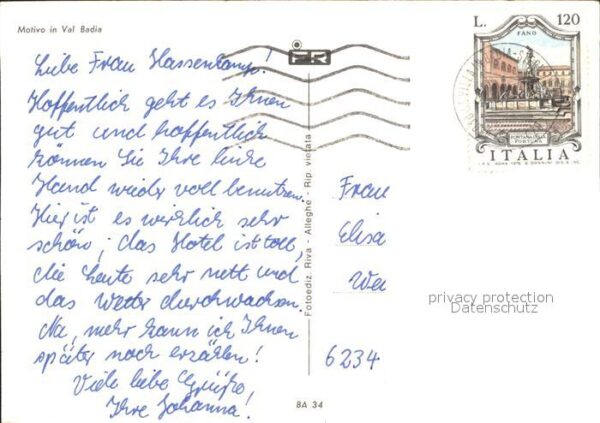 Motivo in Val Badia
Liebe Frau Hassenkamp!
Hoffentlich geht es Ihnen
gut und hoffentlich
können Sie Ihre linke
Hand wieder voll benutzen.
Hier ist es wirklich sehr
schön; das Hotel ist toll,
die Leute sehr nett und
das Wetter durchwachsen.
Na, mehr kann ich Ihnen
später noch erzählen!
Viele liebe Grüße!
Ihre Johanna!
Fotoediz. Riva - Alleghe - Rip. vietata
BA 34
L. 120
FANO
FONTANA DELLA
FORTUNA
ITALIA
Frau
Elisa
We
privacy protection
Datenschutz
6234